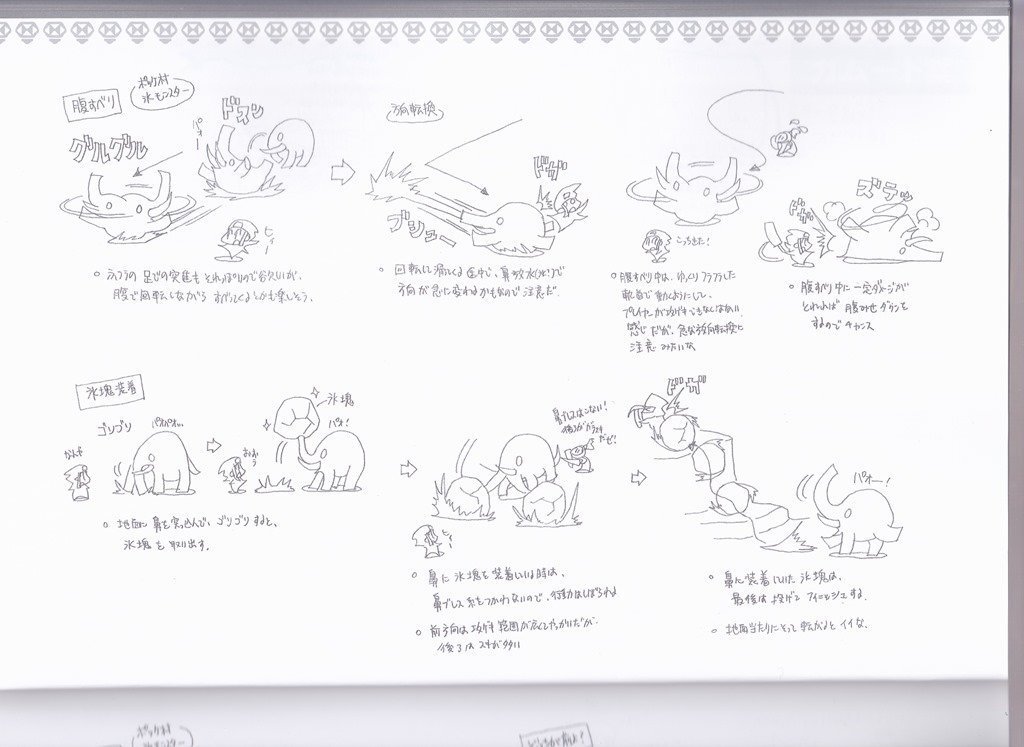 腹すべり
ポッケ村
氷モンスター
ドスン
パォー
グルグル
ヒィー
腹で回転しながら すべってくるとかも楽しそう。
方向転換
ドガ
ブシュー
方向が急に変わるかもなので注意だ。
こっちきた!
腹すべり中は、ゆっくりフラフラした
軌道で動くようにして、
感じだが、急な方向転換に
注意 みたいな
ズラァッ
ドガ
腹すべり中に一定ダメージが
とれれば 腹みせダウンを
するのでチャンス
氷塊装着
ゴリゴリ
パオパオ…
なんだ
おおう
氷塊
パオ!
地面に 鼻を突っ込んで、ゴリゴリすると、
氷塊を 取り出す。
鼻ブレスはこない!
後ろがガラ空き
だぜ!
鼻に 氷塊を 装着している時は、
鼻ブレス系をつかわないので、行動はしぼられる
前方向は攻撃範囲が広くてやっかいだが
後ろは スキがタタい
ドガガ
パオー!
鼻に装着していた 氷塊は、
最後は投げて フィニッシュする。
地面当たりにそって転がると イイな。
ポッケ村
氷モンスター